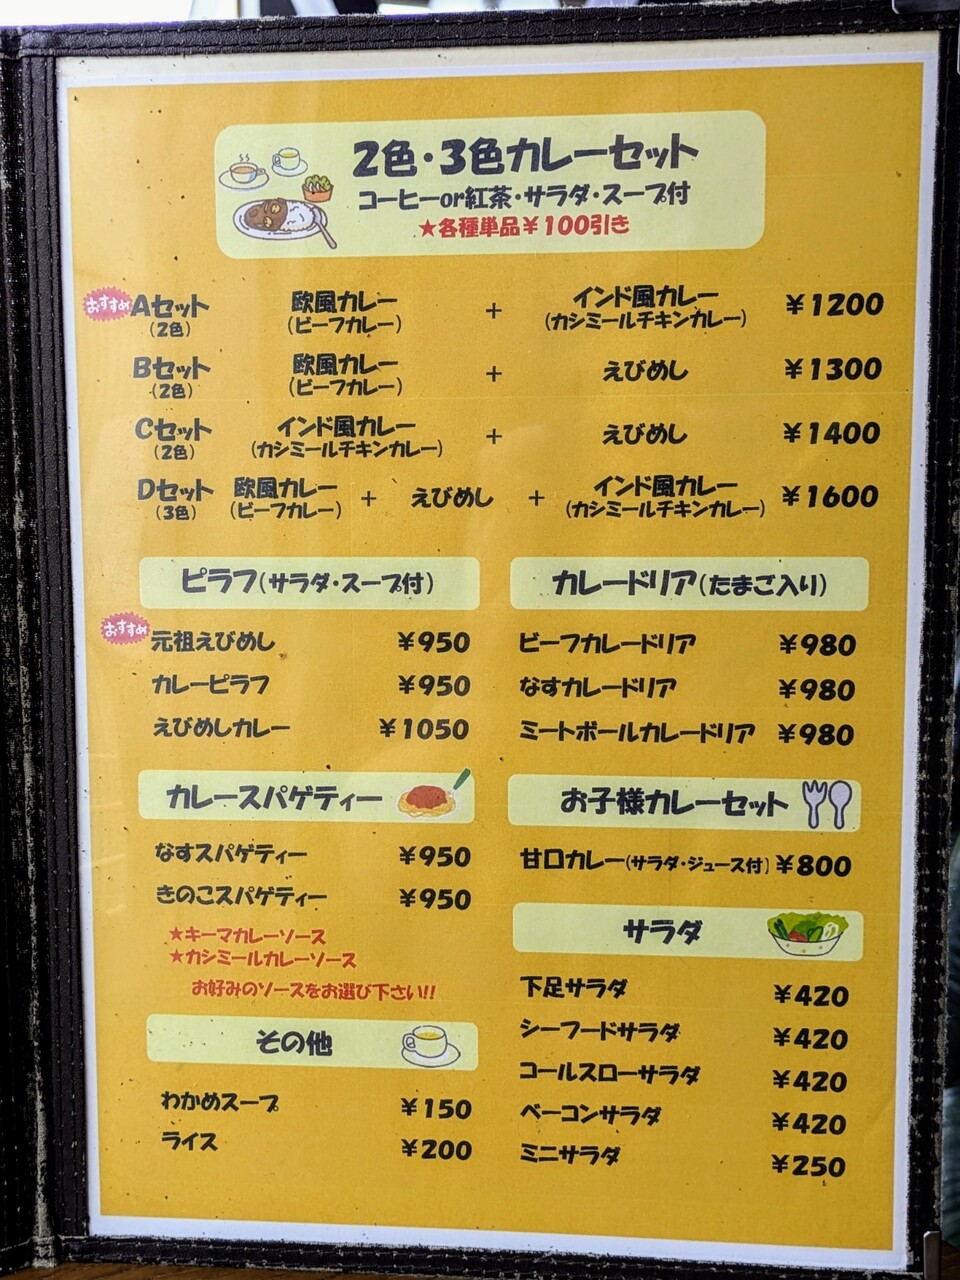 2色・3色カレーセット
コーヒーor紅茶・サラダ・スープ付
★各種単品￥100引き
おすすめ Aセット 欧風カレー + インド風カレー ￥1200
(2色) (ビーフカレー) (カシミールチキンカレー)
Bセット 欧風カレー + えびめし ￥1300
(2色) (ビーフカレー)
Cセット インド風カレー + えびめし ￥1400
(2色) (カシミールチキンカレー)
Dセット 欧風カレー + えびめし + インド風カレー ￥1600
(3色) (ビーフカレー) (カシミールチキンカレー)
ピラフ(サラダ・スープ付)
おすすめ 元祖えびめし ￥950
カレーピラフ ￥950
えびめしカレー ￥1050
カレースパゲティー
なすスパゲティー ￥950
きのこスパゲティー ￥950
★キーマカレーソース
★カシミールカレーソース
お好みのソースをお選び下さい!!
その他
わかめスープ ￥150
ライス ￥200
カレードリア(たまご入り)
ビーフカレードリア ￥980
なすカレードリア ￥980
ミートボールカレードリア ￥980
お子様カレーセット
甘口カレー(サラダ・ジュース付) ￥800
サラダ
下足サラダ ￥420
シーフードサラダ ￥420
コールスローサラダ ￥420
ベーコンサラダ ￥420
ミニサラダ ￥250